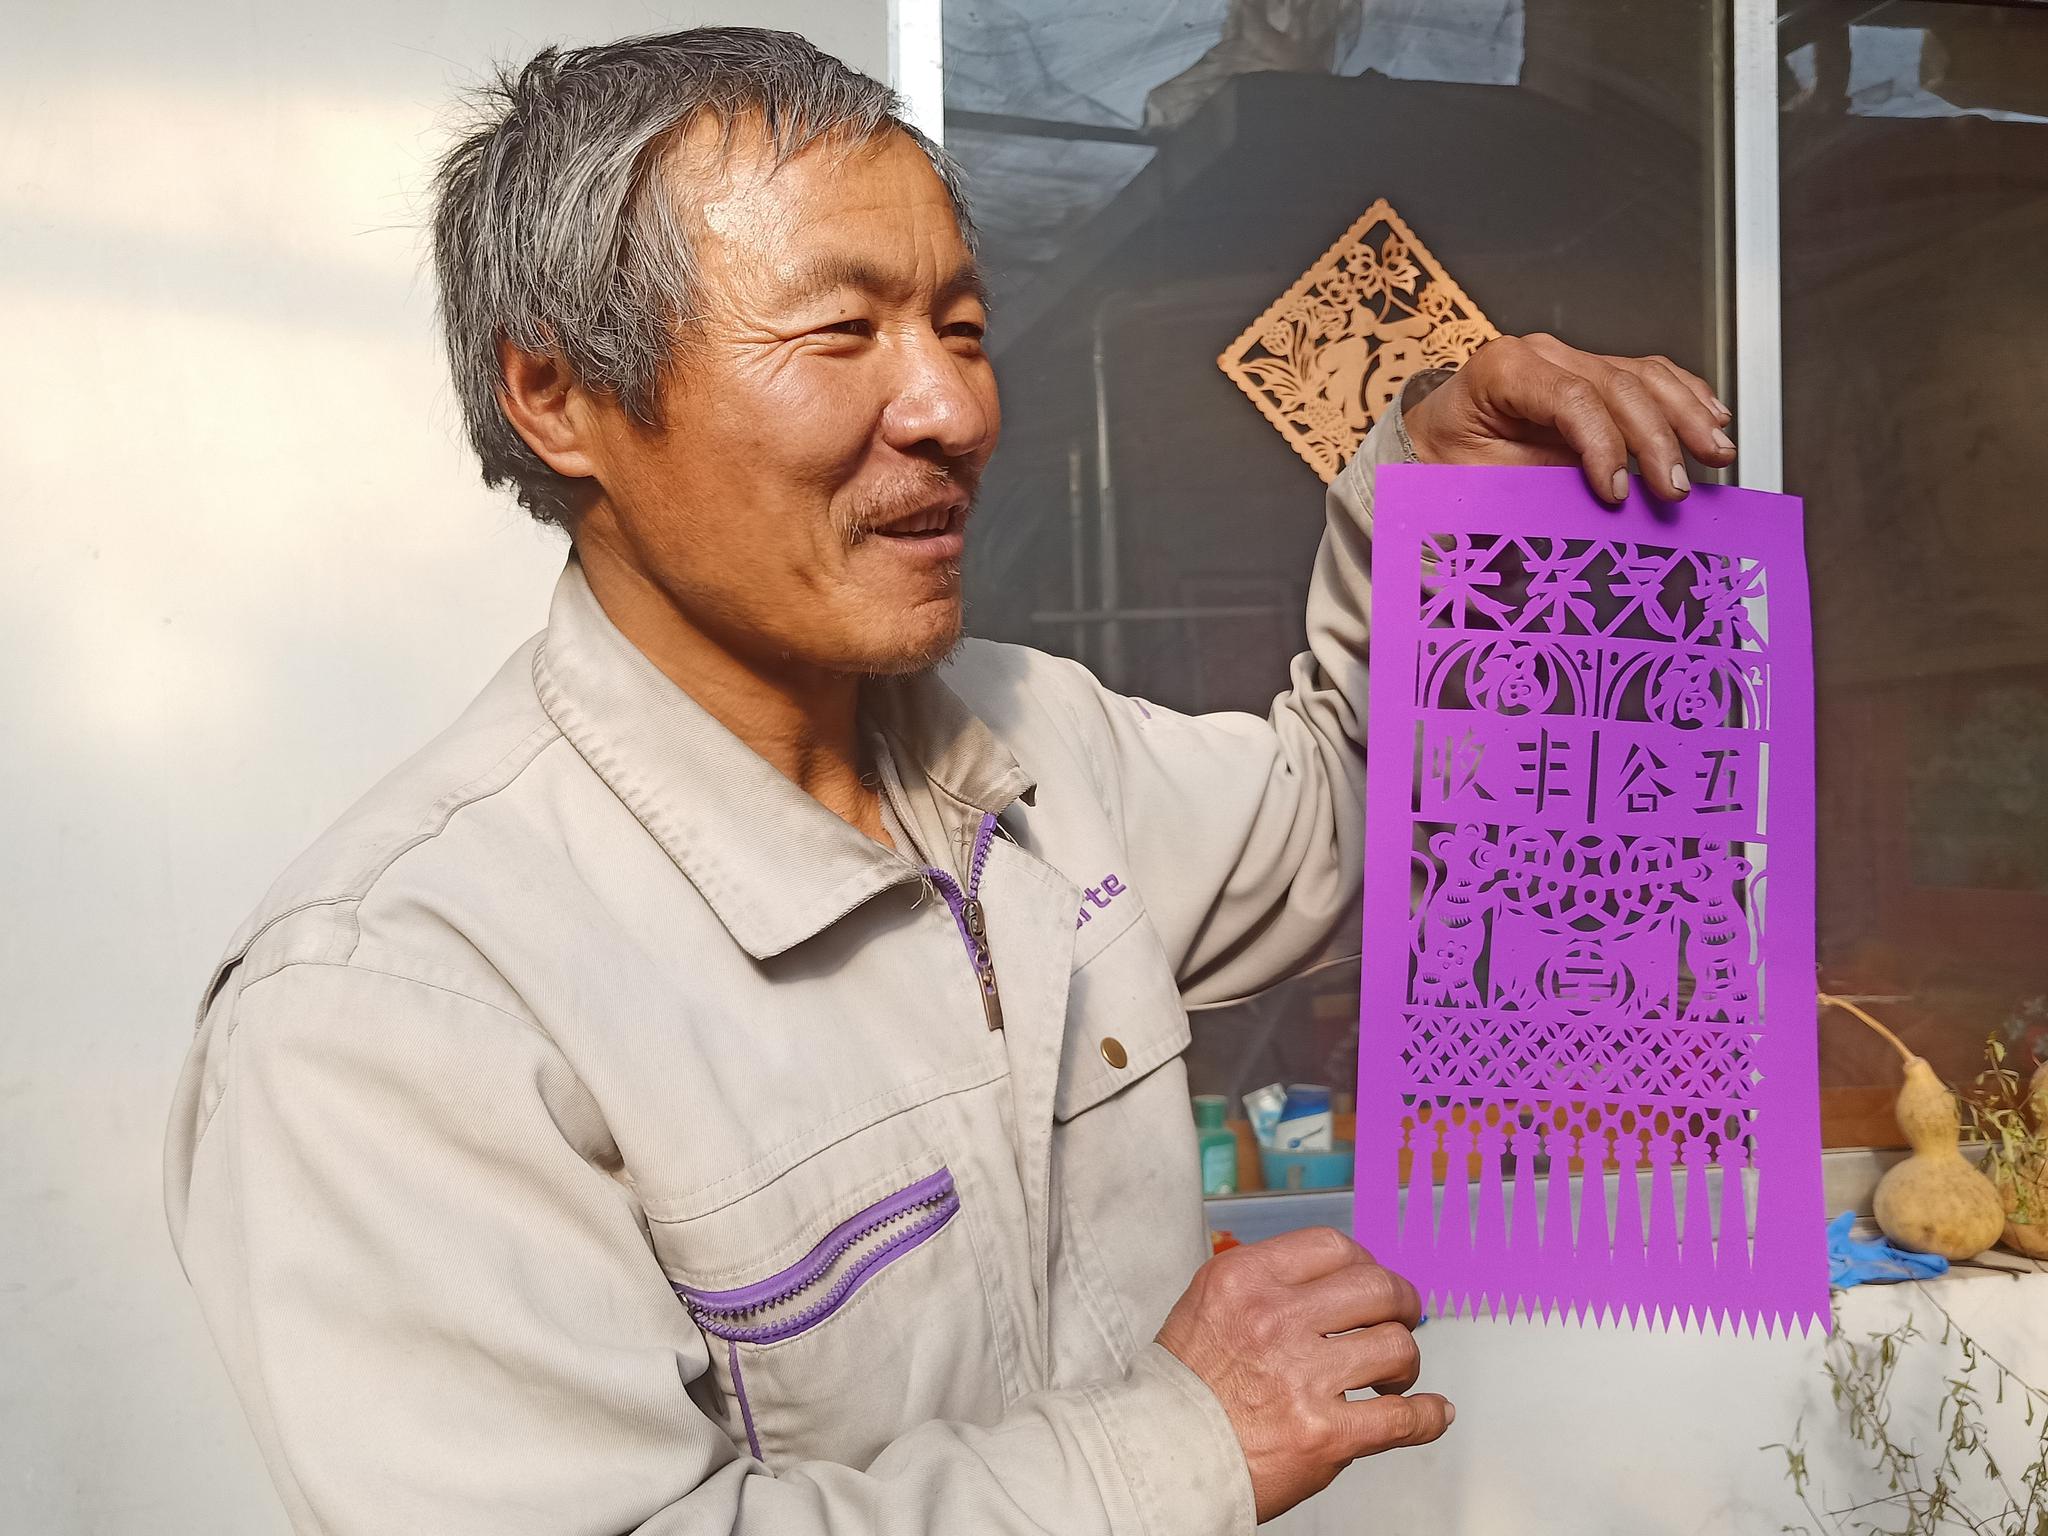 福
紫气东来
福 福
五谷丰收